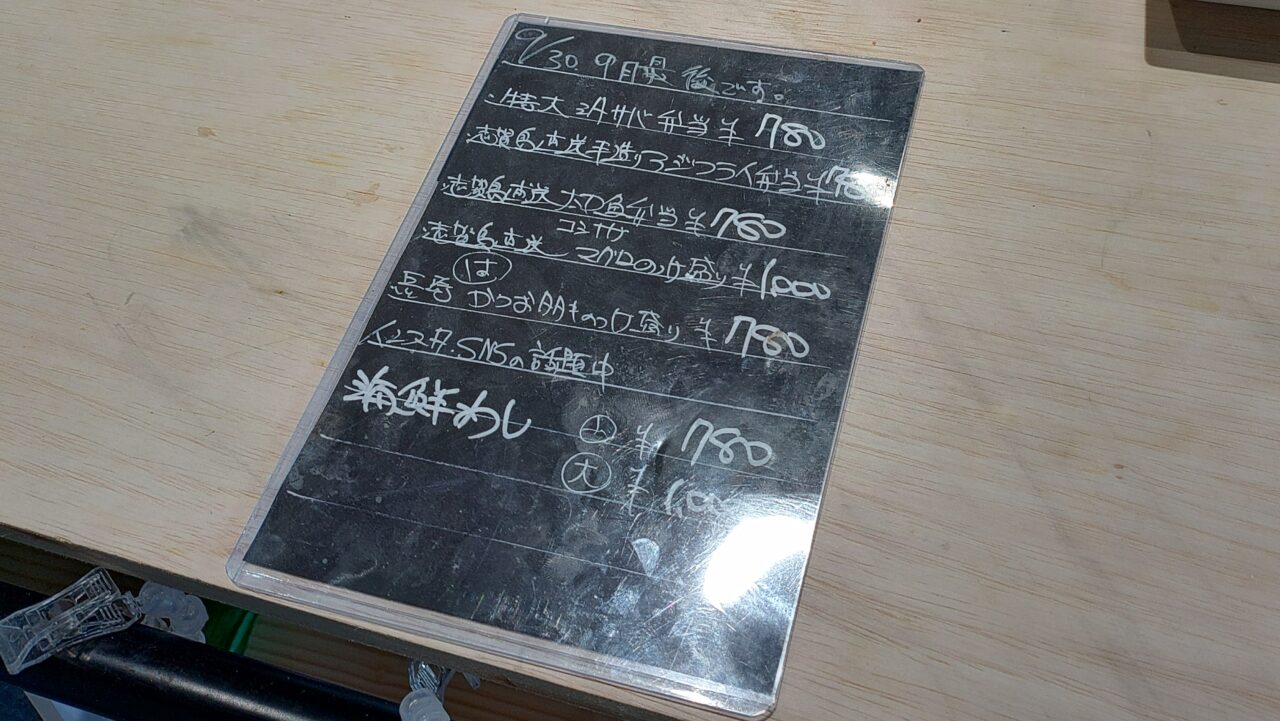 9/30. 9月最後です。
特大 サバ弁当 ¥780
志賀島直送手造りアジフライ弁当
志賀島直送 太刀魚弁当 ¥780
志賀島直送 コシナガ マグロのっけ盛り ¥1,000
は
長崎 かつお のっけ盛り ¥780
インスタ.SNSの話題中
海鮮めし 小 ¥780
大 ¥1,000